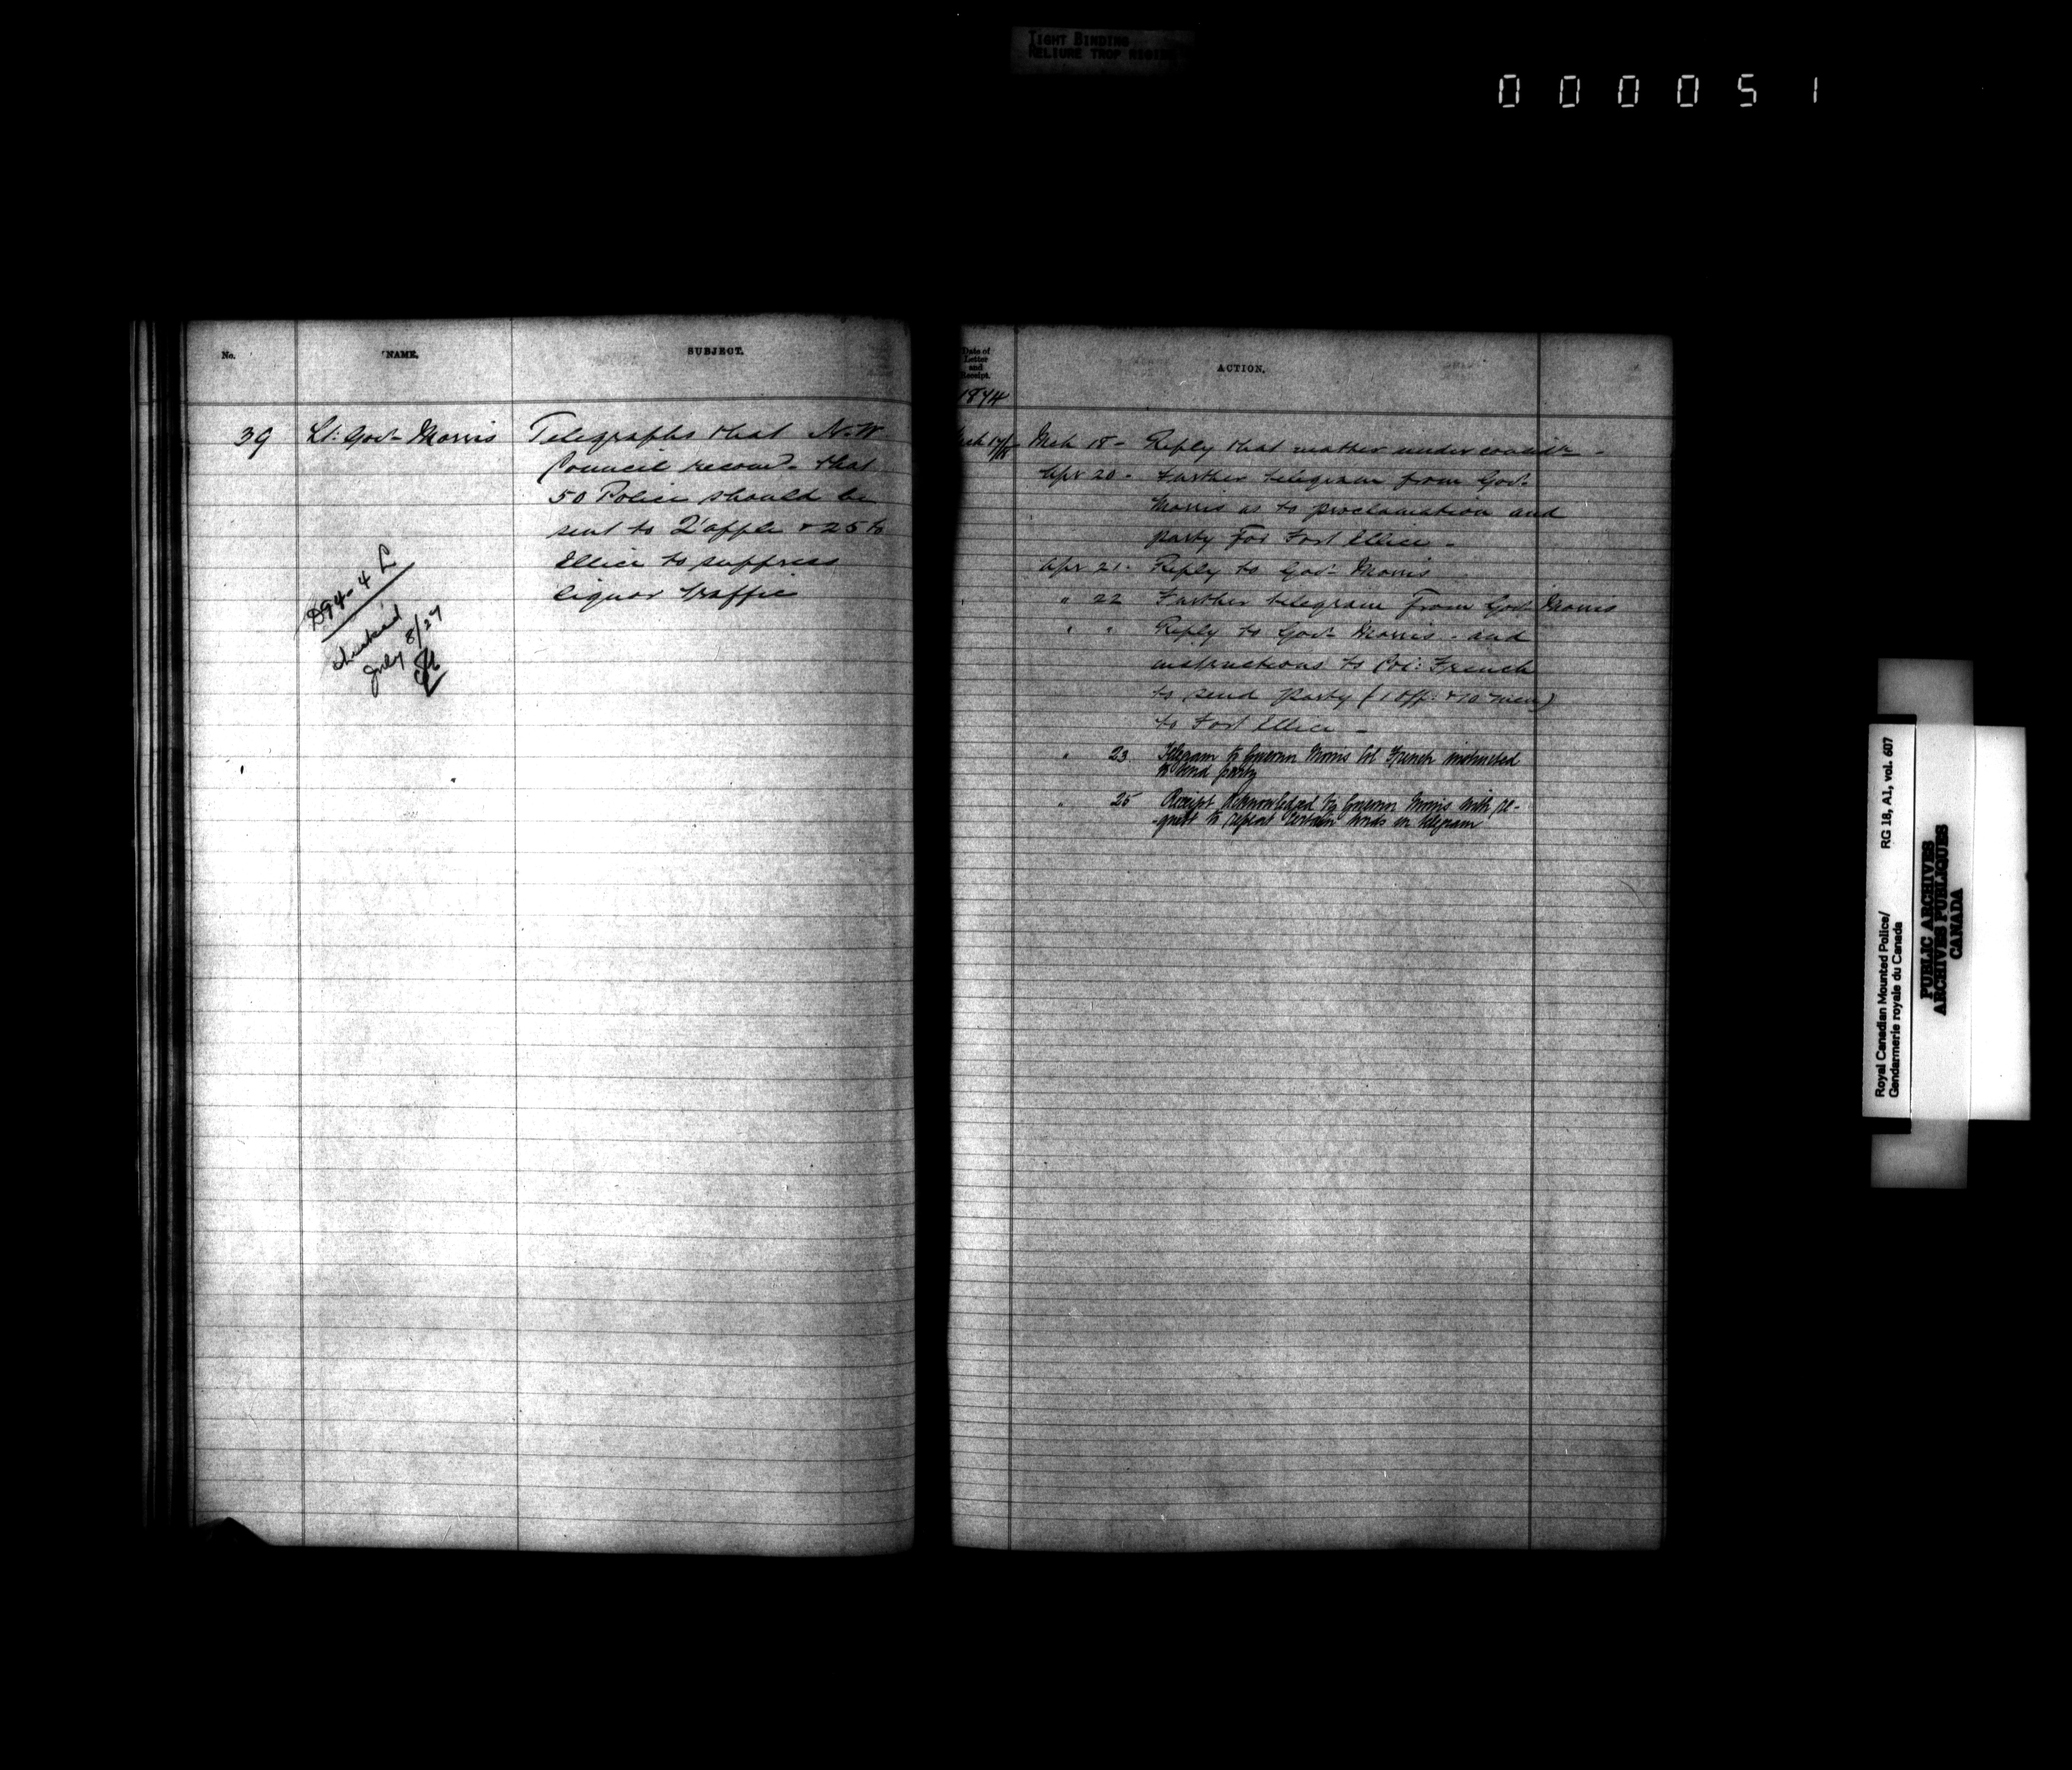 TIGHT BINDING
RELIURE TROP RIGIDE
000051
No.
NAME.
SUBJECT.
39
Lt: Govr Morris
Telegraphs that N.W.
Council recomd. that
50 Police should be
sent to Q'apple & 25 to
Ellice to suppress
liquor traffic
D94-4 L
July 8/27
Date of
Letter
and
Receipt.
ACTION.
1874
Mch 17/18
Mch 18 - Reply that matter under considn -
Apr 20 - Further telegram from Govr
Morris as to proclamation and
party for Fort Ellice -
Apr 21 - Reply to Govr Morris
" 22 Further telegram from Govr Morris
" " Reply to Govr Morris - and
instructions to Col: French
to send party (1 Off: & 10 men)
to Fort Ellice -
" 23 Telegram to Governor Morris Col French instructed
to send party
" 25 Receipt acknowledged by Governor Morris with re-
-quest to repeat certain words in telegram
Royal Canadian Mounted Police/
Gendarmerie royale du Canada
RG 18, A1, vol. 607
PUBLIC ARCHIVES
ARCHIVES PUBLIQUES
CANADA